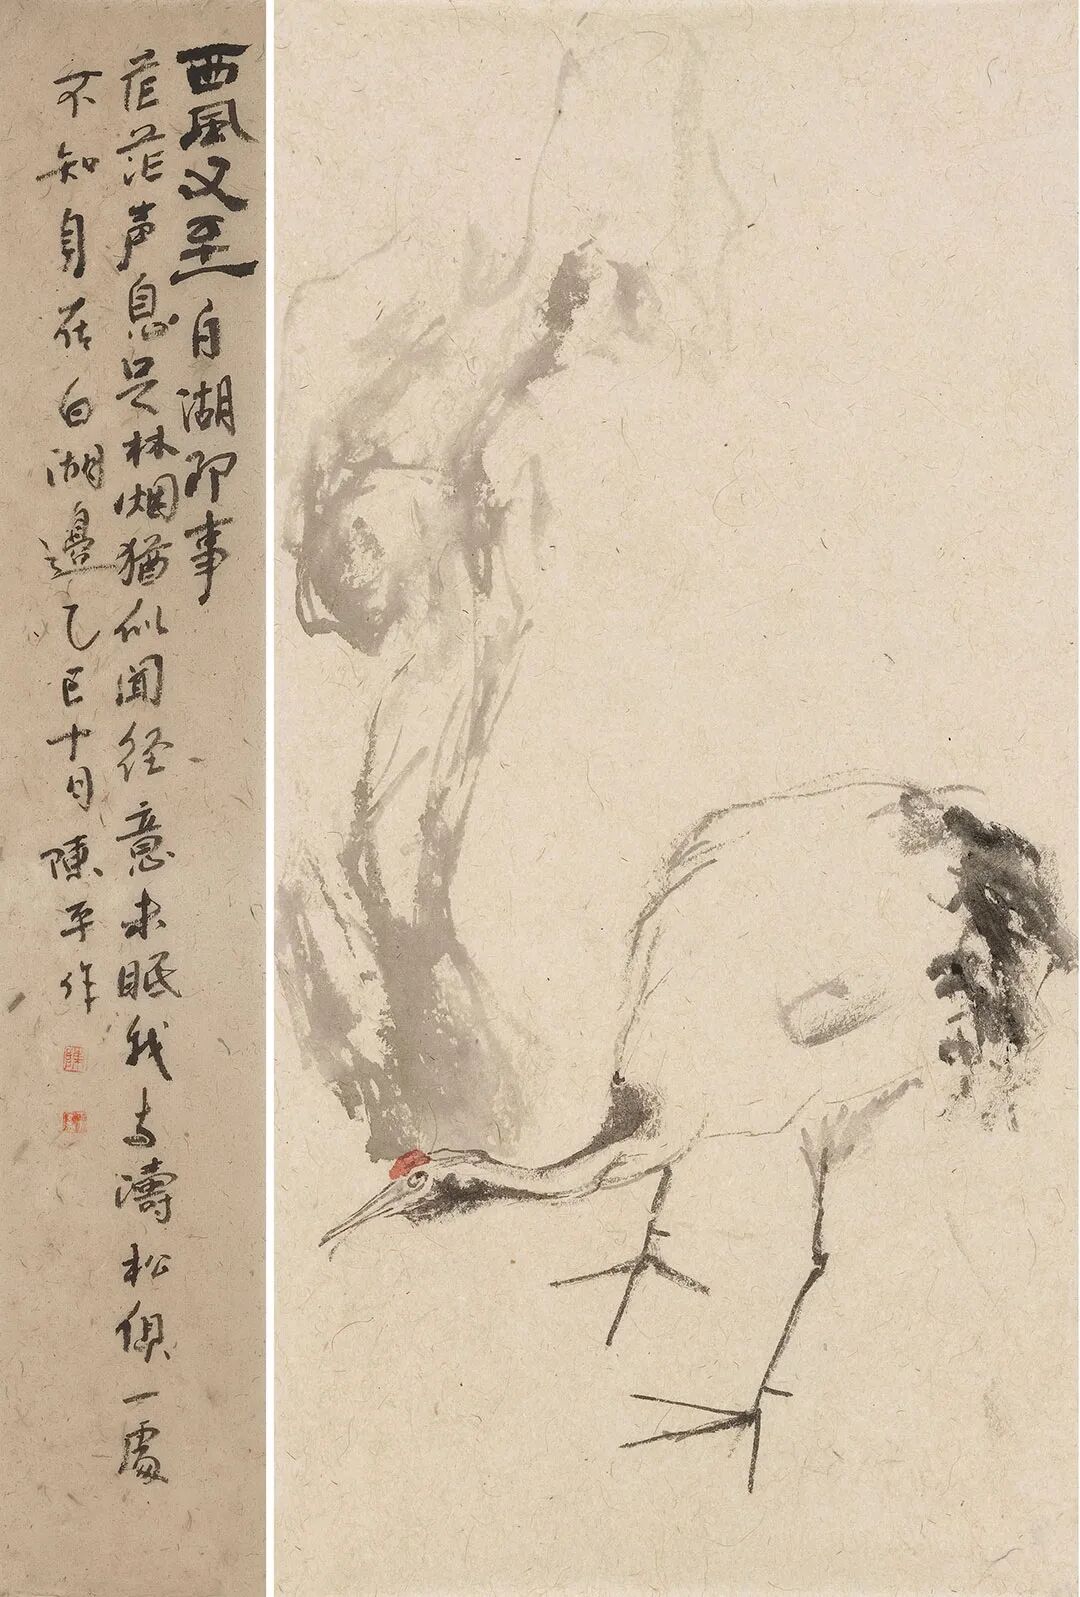 西風又至白湖即事
茫茫声息是林烟猶似聞经意未眠我与濤松俱一處
不知身在白湖邊乙巳十月陳平作